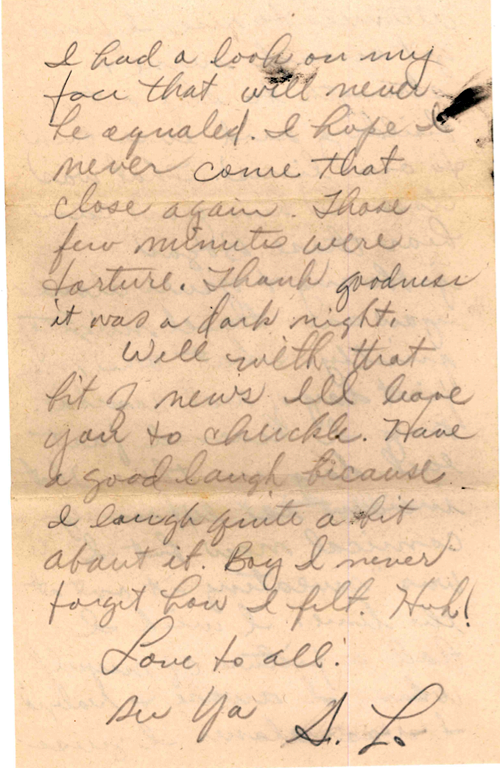 I had a look on my
face that will never
be equaled. I hope I
never come that
close again. Those
few minutes were
torture. Thank goodness
it was a dark night.
Well with that
bit of news I'll leave
you to chuckle. Have
a good laugh because
I laugh quite a bit
about it. Boy I never
forget how I felt. Huh!
Love to all.
See Ya S. L.